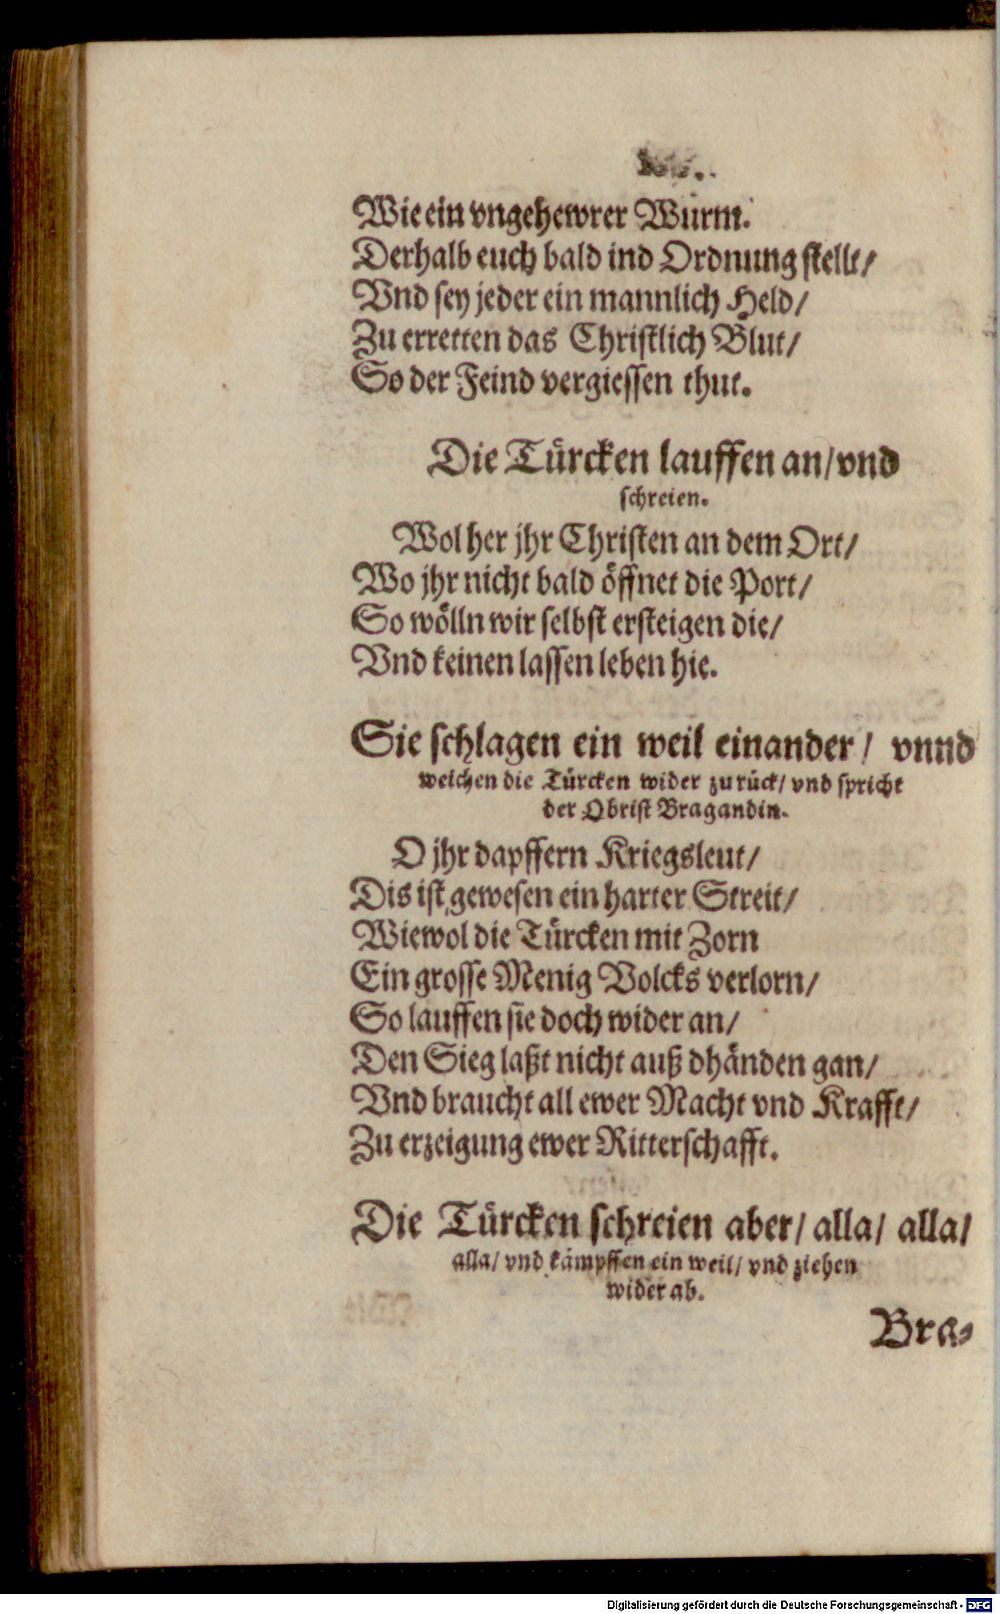 Wie ein vngehewrer Wurm.
Derhalb euch bald ind Ordnung stellt/
Vnd sey jeder ein mannlich Held/
Zu erretten das Christlich Blut/
So der Feind vergiessen thut.
Die Türcken lauffen an/ vnd
schreien.
Wol her jhr Christen an dem Ort/
Wo jhr nicht bald öffnet die Port/
So wölln wir selbst ersteigen die/
Vnd keinen lassen leben hie.
Sie schlagen ein weil einander/ vnnd
weichen die Türcken wider zu rück/ vnd spricht
der Obrist Bragandin.
O jhr dapffern Kriegsleut/
Dis ist gewesen ein harter Streit/
Wiewol die Türcken mit Zorn
Ein grosse Menig Volcks verlorn/
So lauffen sie doch wider an/
Den Sieg laßt nicht auß dhänden gan/
Vnd braucht all ewer Macht vnd Krafft/
Zu erzeigung ewer Ritterschafft.
Die Türcken schreien aber/ alla/ alla/
alla/ vnd kämpffen ein weil/ vnd ziehen
wider ab.
Bra-
Digitalisierung gefördert durch die Deutsche Forschungsgemeinschaft - DFG